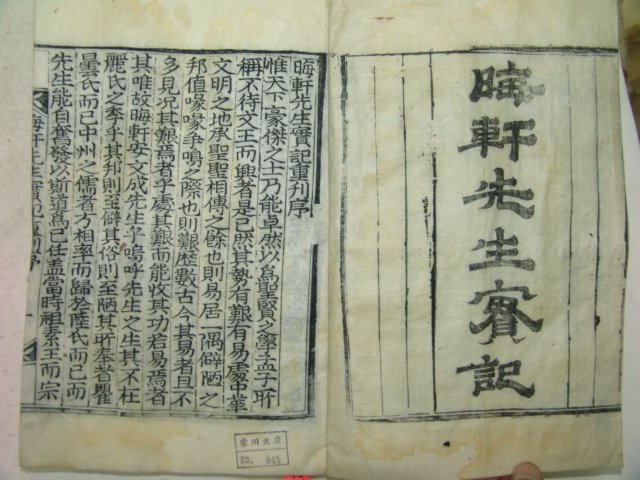 晦軒先生實記
晦軒先生實記重刋序
惟天下豪傑之士乃能卓然以爲聖賢之學孟子所
稱不待文王而興者是已然其勢有艱有易處中華
文明之地承聖聖相傳之餘也則易居一隅僻陋之
邦值喙喙爭鳴之際也則艱歷數古今其易者且不
多見况其艱焉者乎處其艱而能收其功若易焉者
其唯故晦軒安文成先生乎嗚呼先生之生其不在
麗氏之季乎其邦則至僻其俗則至陋其所奉者瞿
曇氏而已中州之儒者方相率而歸於陸氏而已而
先生能自奮發以斯道爲己任盖當時祖素王而宗
晦軒先生實記重刋序
雲川文庫
No. 945